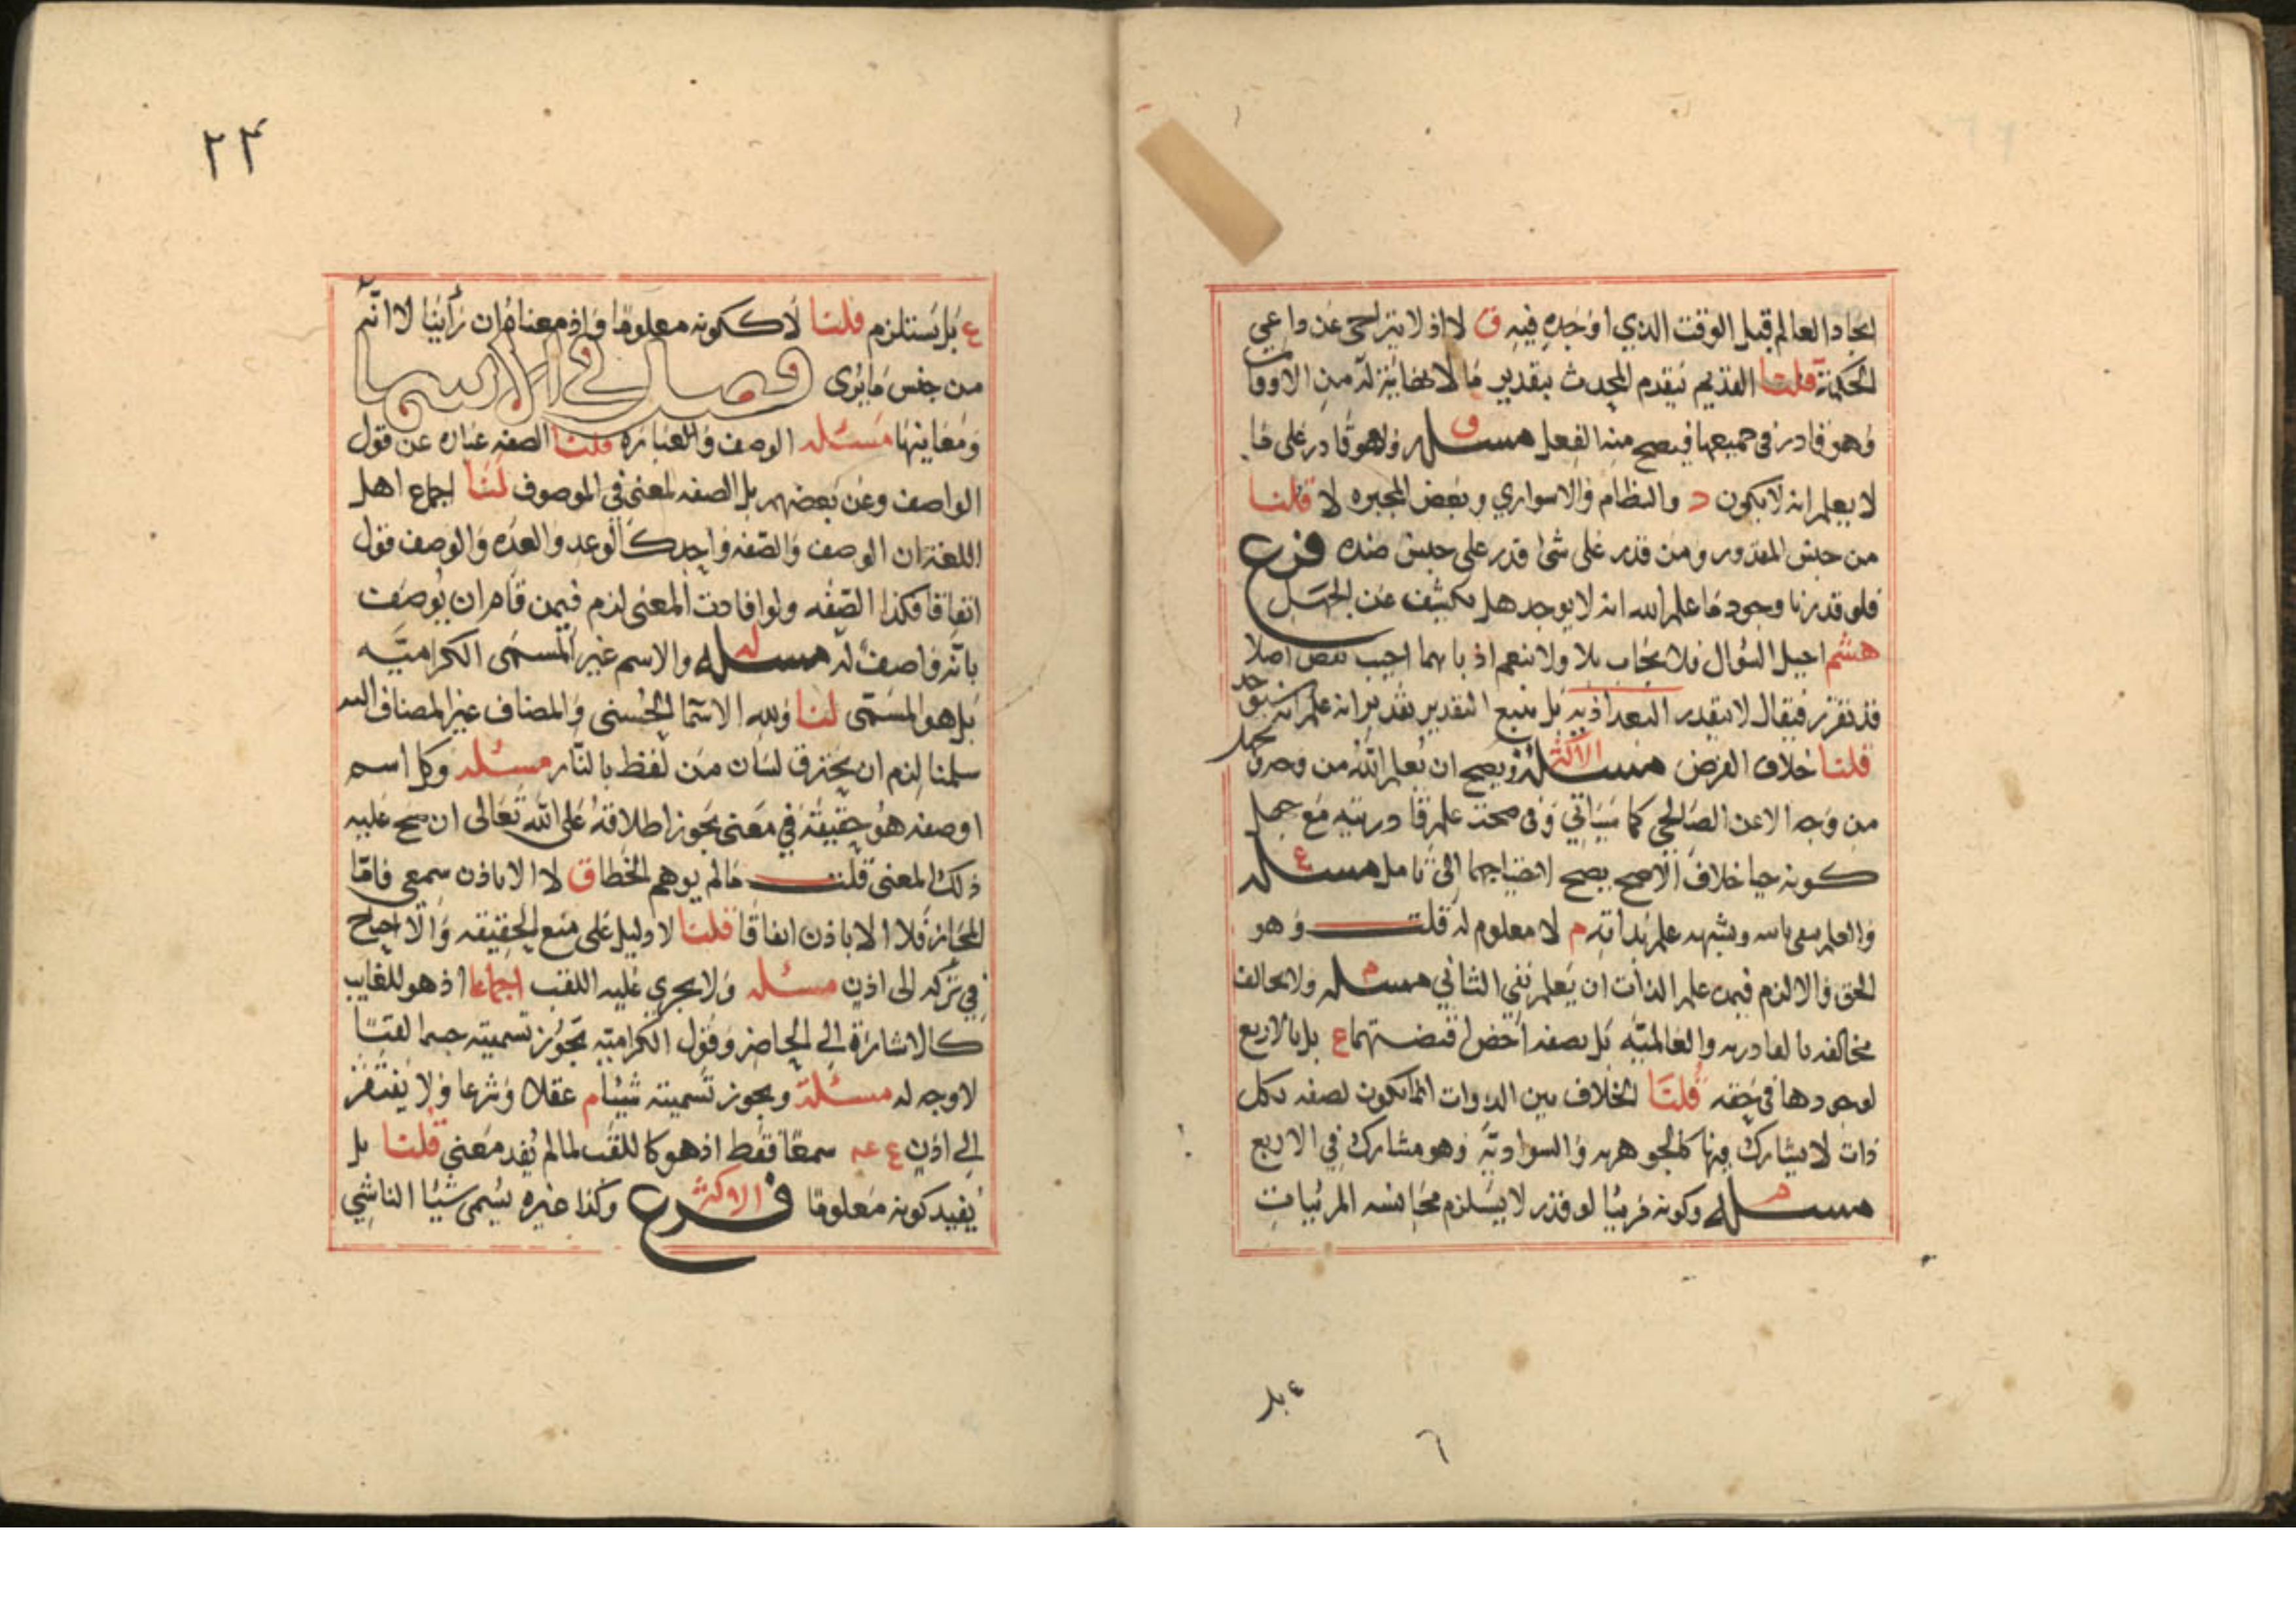 ايجاد العالم قبل الوقت الذي اوجده فيه ق لا اذ لا يتراخى عن داعي
الحكمة قلنا القديم يتقدم المحدث بتقدير ما لا نهاية له من الاوقات
وهو قادر في جميعها فيصح منه الفعل مسئله ق وهو قادر على ما
لا يعلم انه لا يكون د والنظام والاسواري وبعض المجبره لا قلنا
من جنس المقدور ومن قدر على شئ قدر على جنس ضده فرع
فلو قدرنا وجود ما علم الله انه لا يوجد هل يكشف عن الجهل
هشم احيل السؤال فلا يجاب بلا ولا بنعم اذ بايهما اجيب نقض اصلا
قد تقرر فيقال لا بتقدير بل يتبع التقدير تقدير انه علم انه سيوجد
قلنا خلاف الفرض مسئله الاكثر ويصح ان يعلم الله من وجه ويجهل
من وجه الا عن الصالحي كما سياتي وفي صحة علم قادريته مع جهل
كونه حيا خلاف الاصح يصح احتياجها الى تامل مسئله ع
والعلم بنفي ثان وشبهه علم بذاته م لا معلوم له قلت وهو
الحق والا لزم فيمن علم الذات ان يعلم نفي الثاني مسئله م ولا يخالف
مخالفه بالقادريه والعالميه بل بصفه اخص اقتضتهما ع بل بالاربع
لوجودها في حقه قلنا الخلاف بين الذوات انما يكون لصفه بكل
ذات لا يشارك فيها كالجوهريه والسواديه وهو مشارك في الاربع
مسئله م وكونه مرئيا لو قدر لا يستلزم مجانسه المرئيات
ع بل
٢٣
ع بل يستلزم قلنا لا ككونه معلوما واذ معناه ان رأينا لا انه
من جنس ما يرى فصل في الاسما
ومعانيها مسئله الوصف والعباره قلنا الصفه عباره عن قول
الواصف وعن بعضهم بل الصفه لمعنى في الموصوف لنا اجماع اهل
اللغة ان الوصف والصفه واحد كالوعد والعده والوصف قول
اتفاقا فكذا الصفه ولو افادت المعنى لزم فيمن قام ان يوصف
بانه واصف له مسئله له والاسم غير المسمى الكراميه
بل هو المسمى لنا ولله الاسما الحسنى والمضاف غير المضاف اليه
سلمنا لزم ان يحترق لسان من لفظ بالنار مسئله وكل اسم
او صفه هو حقيقة في معنى يجوز اطلاقه على الله تعالى ان صح عليه
ذلك المعنى قلت ما لم يوهم الخطا ق لا الا باذن سمعي فاما
المجاز فلا الا باذن اتفاقا قلنا لا دليل على منع الحقيقه والا احتاج
في تركه الى اذن مسئله ولا يجري عليه اللقب اجماعا اذ هو للغايب
كالاشارة الى الحاضر وقول الكراميه يجوز تسميته جسما لقبا
لا وجه له مسئلة ويجوز تسميته شيئا م عقلا وشرعا ولا يفتقر
الى اذن ع عه سمعا فقط اذ هو كاللقب لما لم يفد معنى قلنا بل
يفيد كونه معلوما فرع الاكثر وكذا غيره يسمى شيئا الناشي